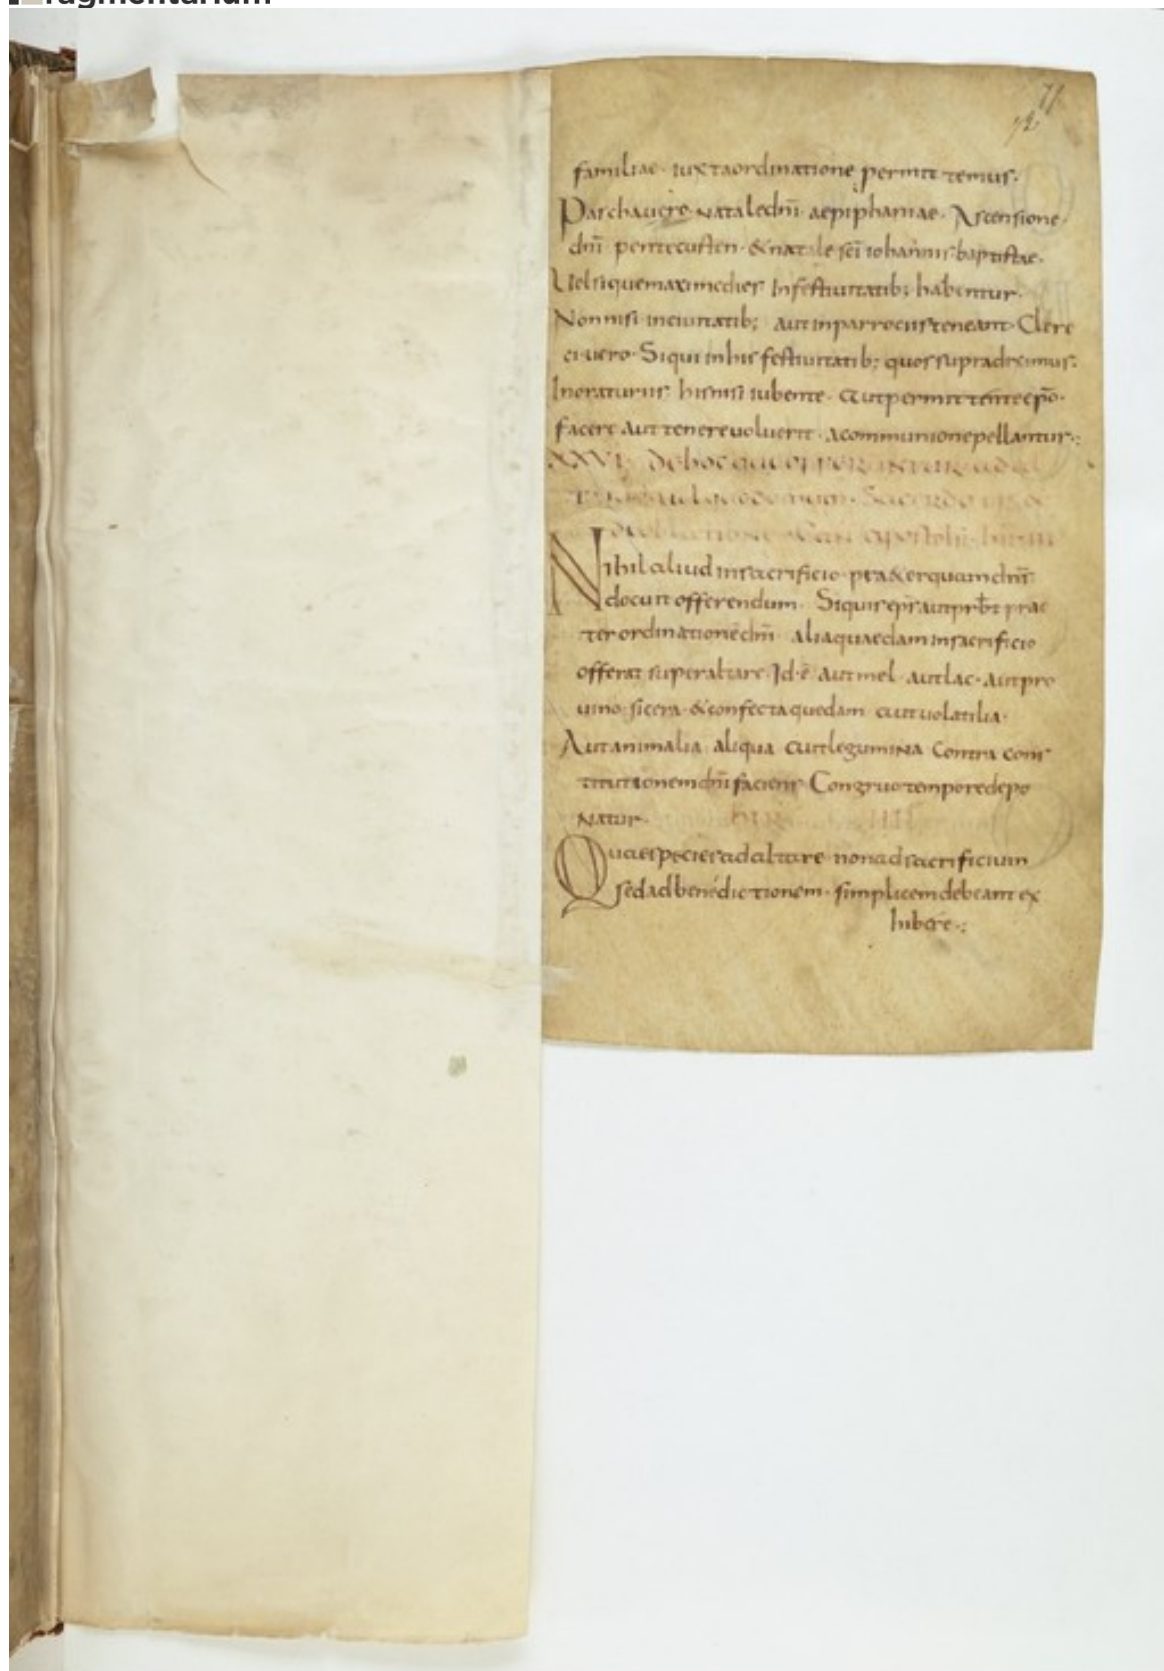 71
72
familiae· iuxtaordinatione permittemus·
Paschauere· Nataledn̄i· aepiphaniae· Ascensione·
dn̄i· pentecosten· &natale sc̄i iohannis· baptistae·
Uelsiquemaximedies Infestiuitatib; habentur·
Nonnisi inciuitatib; autinparrociisteneant· Clere
ciuero· Siqui inhis festiuitatib; quossupradiximus·
Inoraturiis hisnisi iubente· autpermittenteep̄o·
facere auttenereuoluerit· acommunionepellantur·;
XXVI· dehoc
apostoli·
Nihilaliud insacrificio· pta&erquamdn̄s
docuit offerendum· Siquisep̄s autprb̄t prae
terordinationēdn̄i· aliaquaedam insacrificio
offerat superaltare· Id·ē· autmel· autlac· autpro
uino· sicera· &confectaquedam autuolatilia·
Autanimalia aliqua autlegumina Contra cons
titutionemdn̄i faciens· Congruotemporedepo
Natur·
Quaespeciesadaltare nonadsacrificium
sedadbenedictionem· simplicemdebeant ex
hibere·;